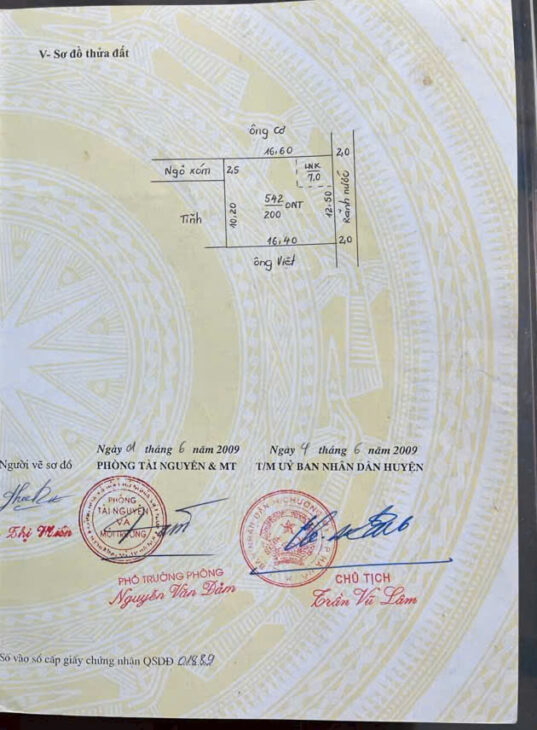 V- Sơ đồ thửa đất
ông Cơ
16,60
2,0
Ngõ xóm
2,5
LNK
7.0
Tĩnh
10,20
542
200
ONT
12,50
Rãnh nước
16,40
2,0
ông Việt
Ngày 01 tháng 6 năm 2009
Ngày 4 tháng 6 năm 2009
Người vẽ sơ đồ
PHÒNG TÀI NGUYÊN & MT
T/M UỶ BAN NHÂN DÂN HUYỆN
PHÒNG
TÀI NGUYÊN
VÀ
MÔI TRƯỜNG
PHÓ TRƯỞNG PHÒNG
Nguyễn Văn Dảm
CHỦ TỊCH
Trần Vũ Lâm
Số vào sổ cấp giấy chứng nhận QSDĐ 01889